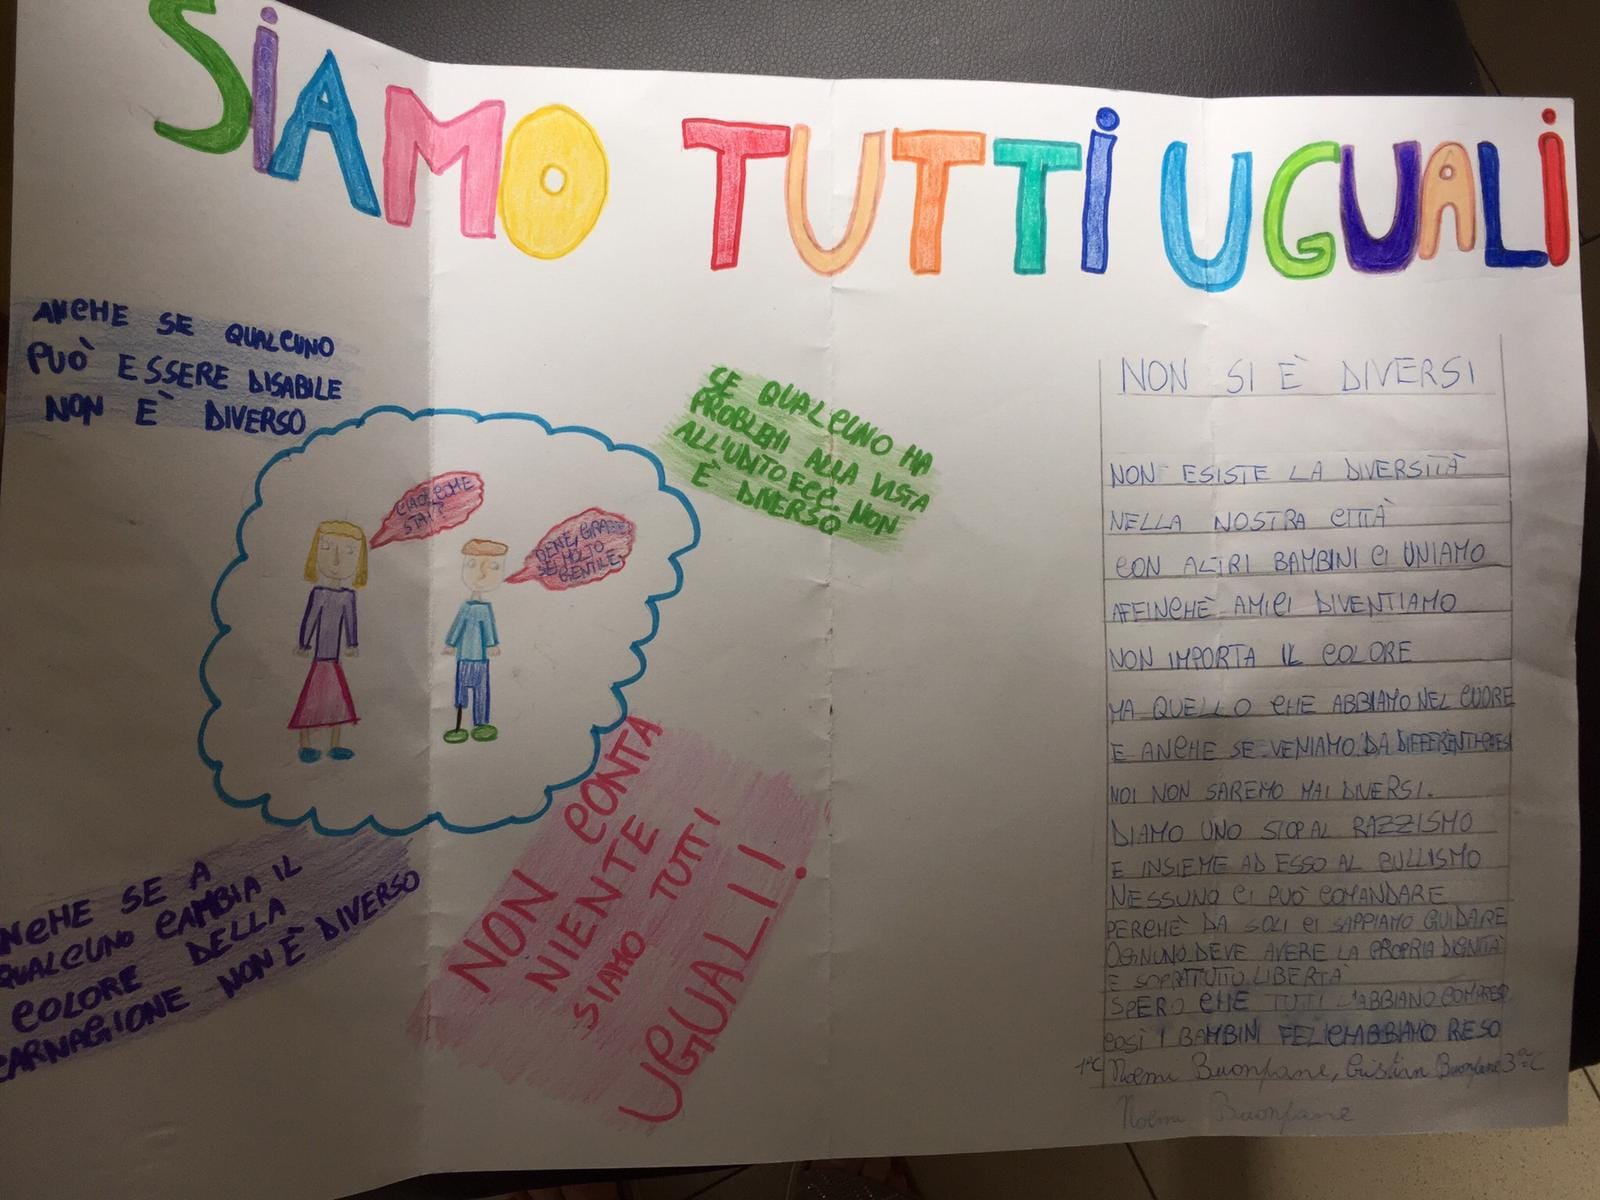 SiAMO TUTTi UGUALi
ANCHE SE QUALCUNO
PUÒ ESSERE DISABILE
NON È DIVERSO
CIAO! COME
STAI?
BENE, GRAZIE
SEI MOLTO
GENTILE.
SE QUALCUNO HA
PROBLEMI ALLA VISTA
ALL'UDITO ECC. NON
È DIVERSO
ANCHE SE A
QUALCUNO CAMBIA IL
COLORE DELLA
CARNAGIONE NON È DIVERSO
NON CONTA
NIENTE
SIAMO TUTTI
UGUALI!
NON SI È DIVERSI
NON ESISTE LA DIVERSITÀ
NELLA NOSTRA CITTÀ
CON ALTRI BAMBINI CI UNIAMO
AFFINCHÈ AMICI DIVENTIAMO
NON IMPORTA IL COLORE
MA QUELLO CHE ABBIAMO NEL CUORE
E ANCHE SE VENIAMO DA DIFFERENTI PAESI
NOI NON SAREMO MAI DIVERSI.
DIAMO UNO STOP AL RAZZISMO
E INSIEME AD ESSO AL BULLISMO
NESSUNO CI PUÒ COMANDARE
PERCHÈ DA SOLI CI SAPPIAMO GUIDARE
OGNUNO DEVE AVERE LA PROPRIA DIGNITÀ
E SOPRATUTTO LIBERTÀ
SPERO CHE TUTTI L'ABBIANO COMPRESO
COSÌ I BAMBINI FELICI ABBIAMO RESO
1ªC Noemi Buonpane, Cristian Buonpane 3ªC
Noemi Buonpane